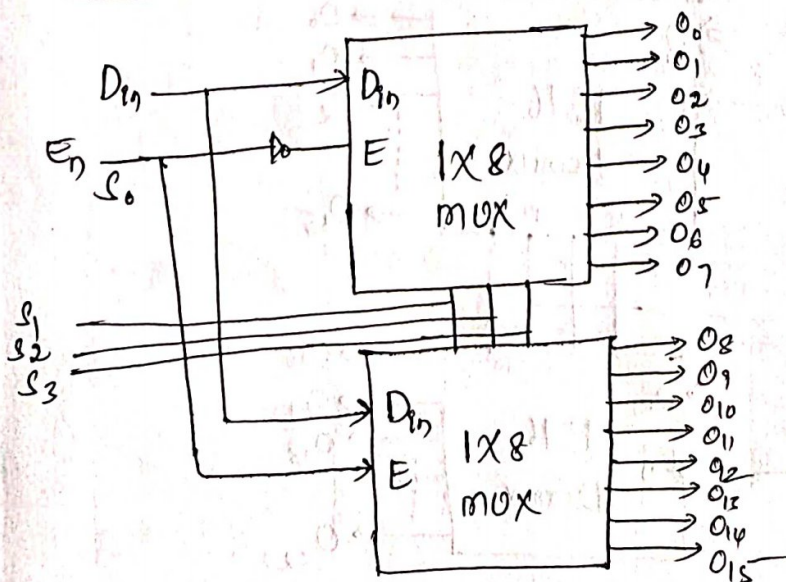 Din
En
S0
Din
E
1X8
MUX
O0
O1
O2
O3
O4
O5
O6
O7
S1
S2
S3
Din
E
1X8
MUX
O8
O9
O10
O11
O12
O13
O14
O15